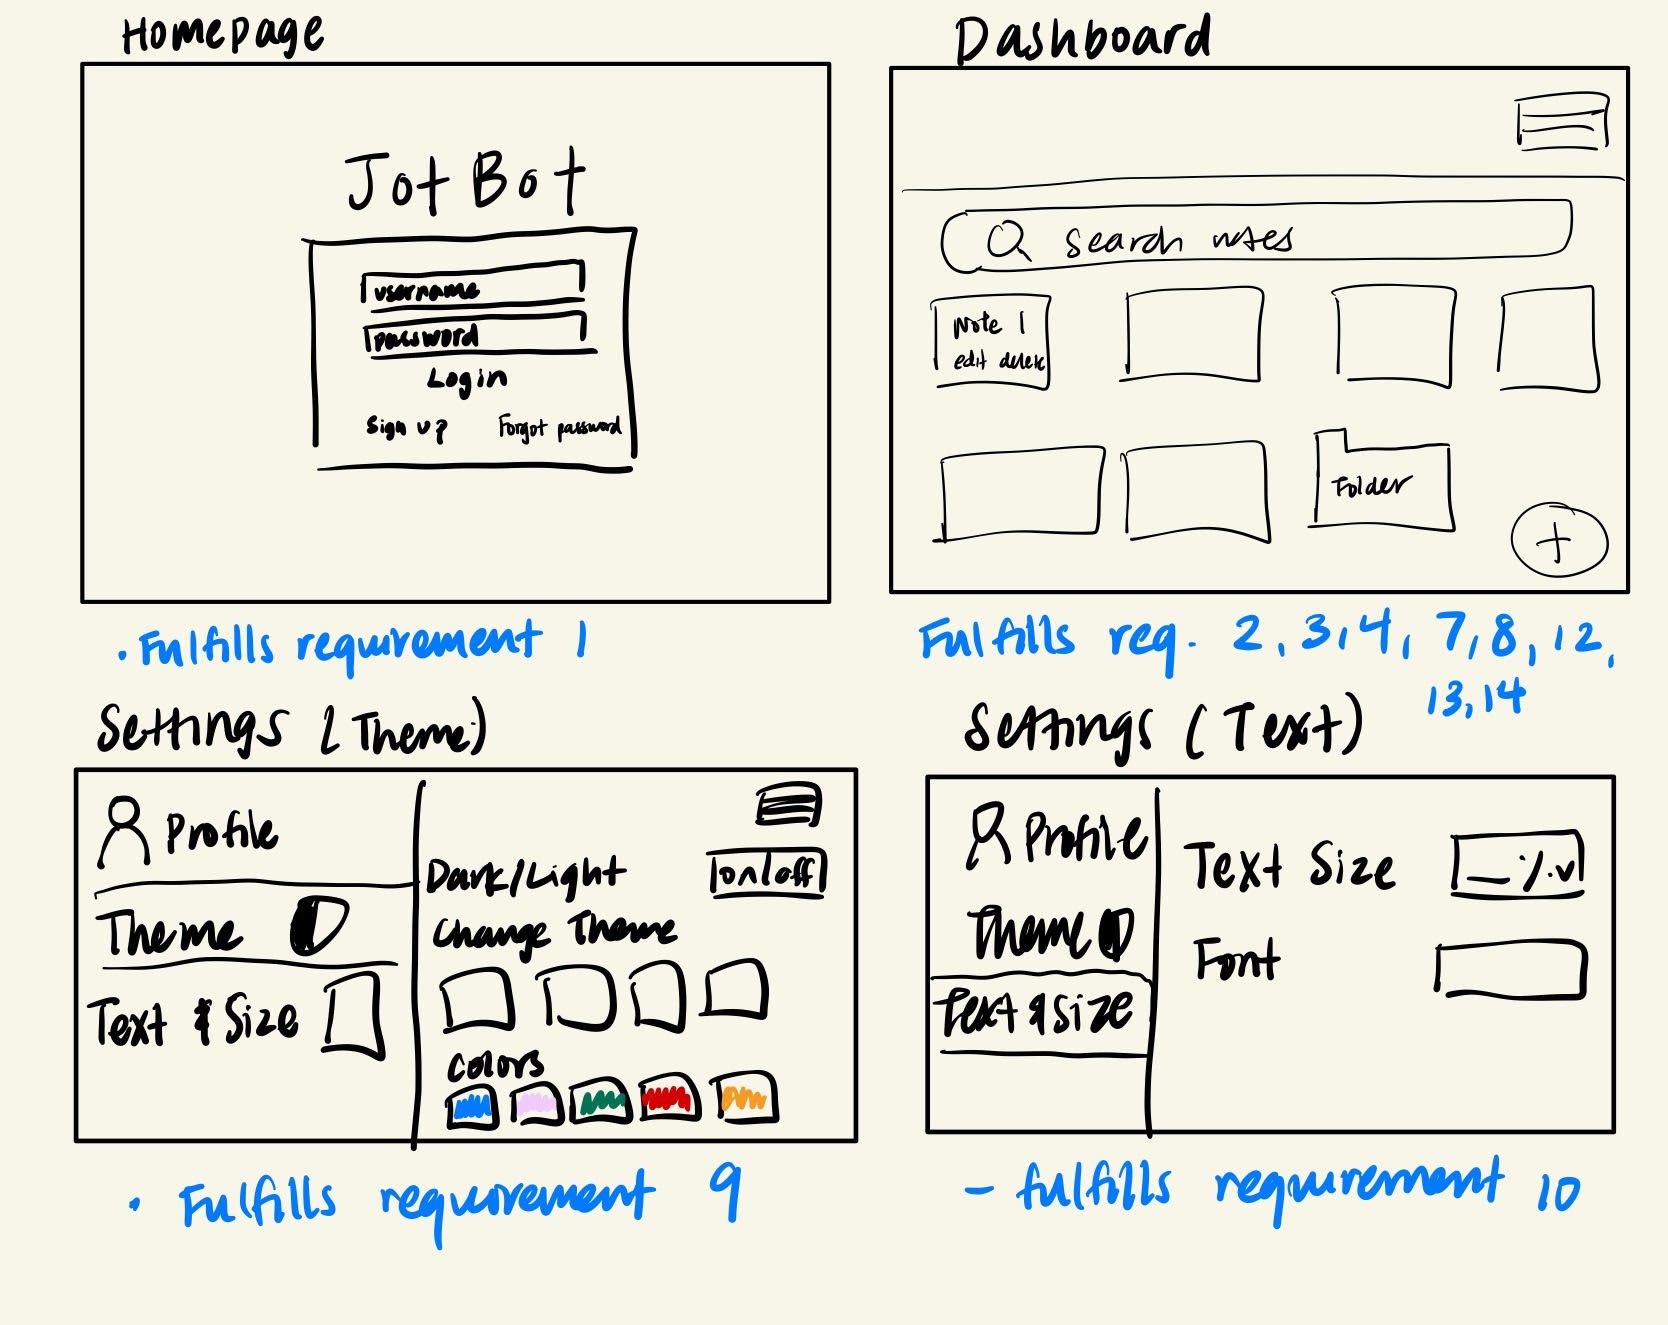 Homepage
JotBot
username
password
Login
Sign up
Forgot password
• Fulfills requirement 1
Dashboard
Search notes
Note 1
edit delete
Folder
+
Fulfills req. 2, 3, 4, 7, 8, 12,
13, 14
Settings (Theme)
Profile
Theme
Text & Size
Dark/Light
on/off
Change Theme
Colors
• Fulfills requirement 9
Settings (Text)
Profile
Theme
Text & Size
Text Size
__ % v
Font
- fulfills requirement 10